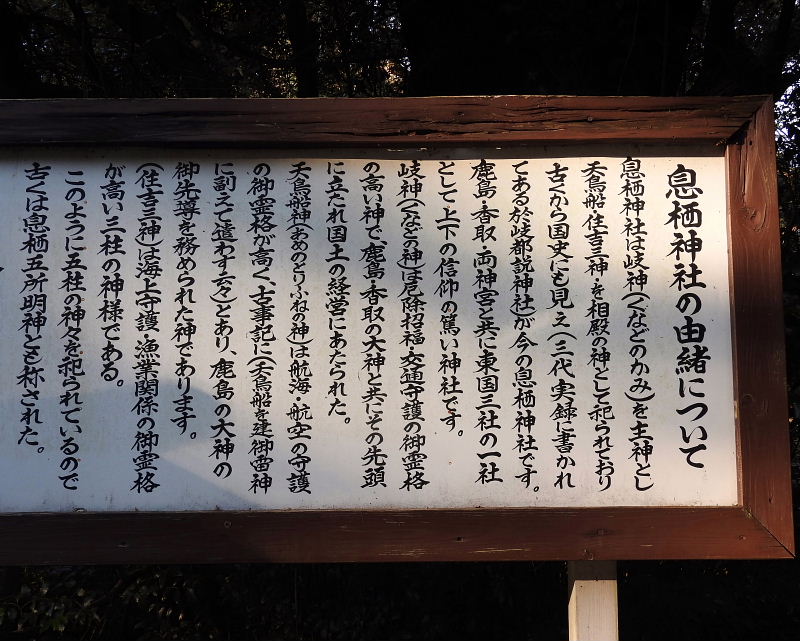 息栖神社の由緒について
息栖神社は岐神(くなどのかみ)を主神とし
天鳥船・住吉三神・を相殿の神として祀られており
古くから国史にも見え(三代実録に書かれ
てある於岐都説神社)が今の息栖神社です。
鹿島・香取・両神宮と共に東国三社の一社
として上下の信仰の篤い神社です。
岐神(くなどの神)は厄除招福・交通守護の御霊格
の高い神で、鹿島・香取の大神と共にその先頭
に立たれ国土の経営にあたられた。
天鳥船神(あめのとりふねの神)は航海・航空の守護
の御霊格が高く、古事記に(天鳥船を建御雷神
に副えて遣わす云々)とあり、鹿島の大神の
御先導を務められた神であります。
(住吉三神)は海上守護・漁業関係の御霊格
が高い三柱の神様である。
このように五柱の神々を祀られているので
古くは息栖五所明神とも称された。